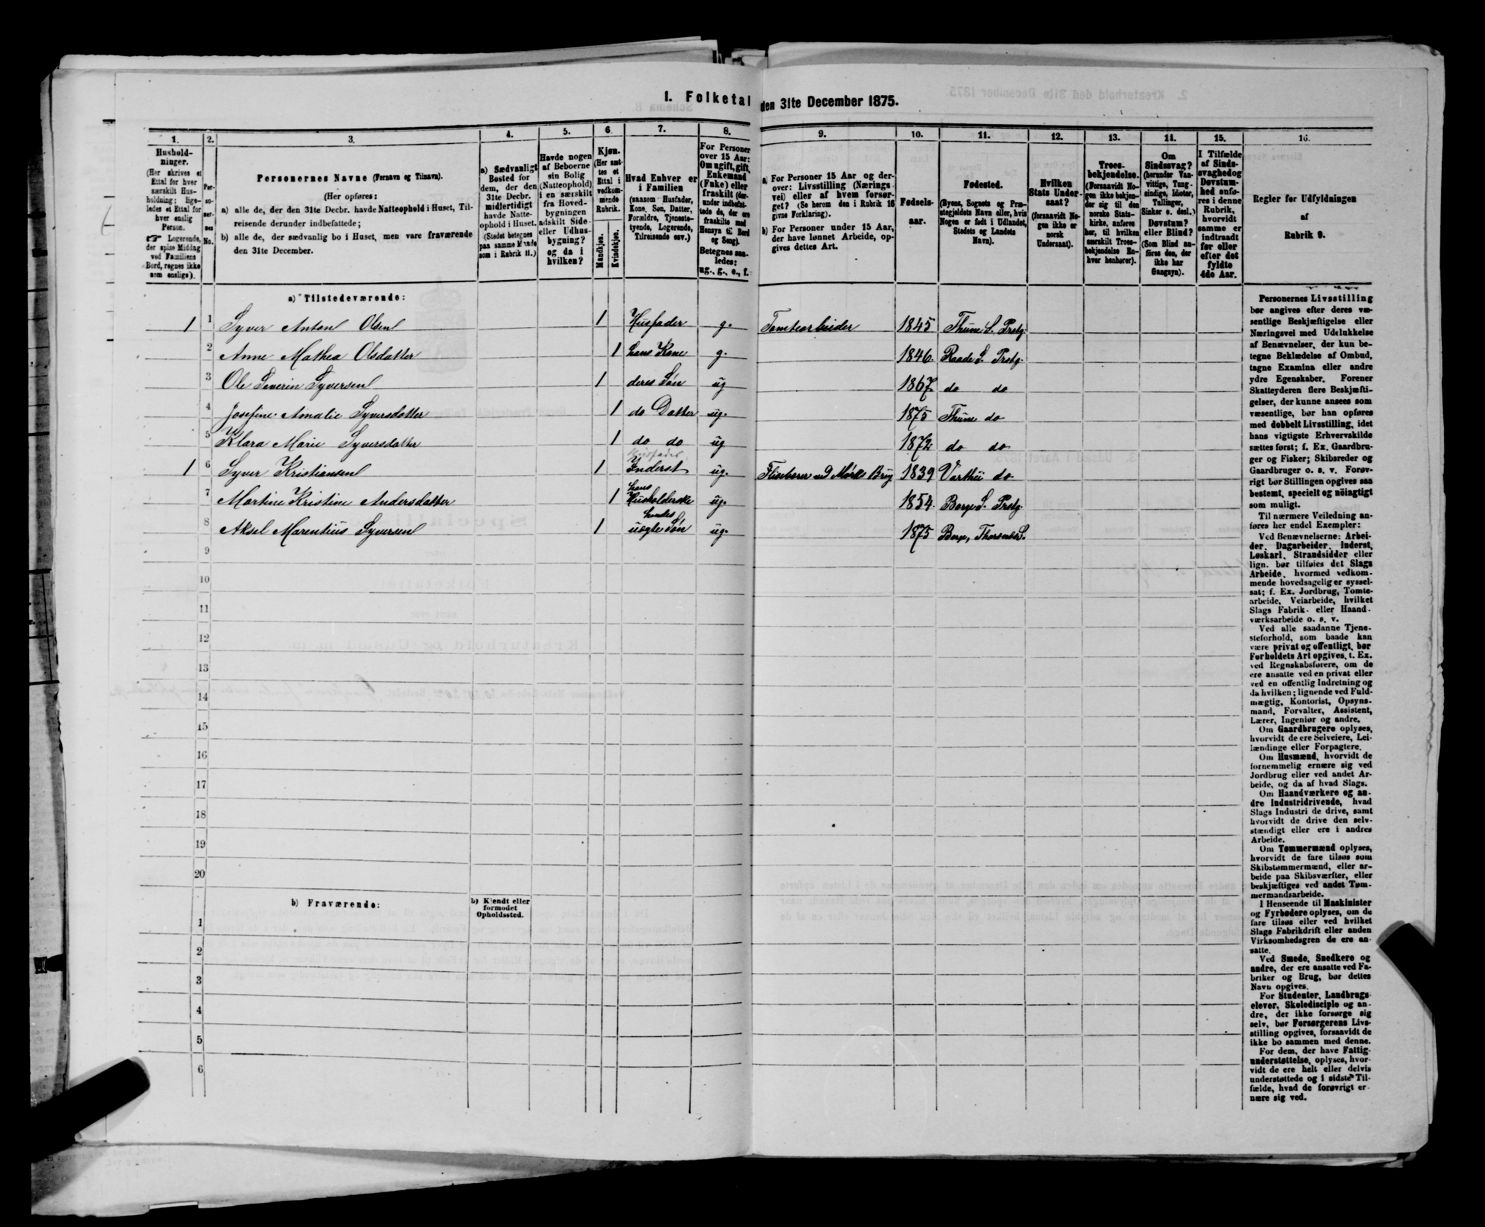 I. Folketal den 31te December 1875.
1. 2. 3. 4. 5. 6. 7. 8. 9. 10. 11. 12. 13. 14. 15. 16.
Husholdninger.
(Her skrives et Ettal for hver særskilt Husholdning; ligeledes et Ettal for hver enslig Person.
☞ Logerende, der spise Middag ved Familiens Bord, regnes ikke som enslige).
Personernes No.
Personernes Navne (Fornavn og Tilnavn).
(Her opføres:
a) alle de, der den 31te Decbr. havde Natteophold i Huset, Tilreisende derunder indbefattede;
b) alle de, der sædvanlig bo i Huset, men vare fraværende den 31te December.
a) Sædvanligt Bosted for dem, der den 31te Decbr. midlertidigt havde Natteophold i Huset.
(Stedet betegnes paa samme Maade som i Rubrik 11.)
Havde nogen af Beboerne sin Bolig (Natteophold) i en særskilt fra Hovedbygningen adskilt Side- eller Udhusbygning? og da i hvilken?
Kjøn.
(Her sættes et Ettal i vedkommende Rubrik.
Mandkjøn.
Kvindekjøn.
Hvad Enhver er i Familien
(saasom: Husfader, Kone, Søn, Datter, Forældre, Tjenestetyende, Logerende, Tilreisende osv.)
For Personer over 15 Aar: Om ugift, gift, Enkemand (Enke) eller fraskilt (derunder indbefattede de, der ere fraskilte med Hensyn til Bord og Seng).
Betegnes saaledes: ug., g., e., f.
a) For Personer 15 Aar og derover: Livsstilling (Næringsvei) eller af hvem forsørget? (Se herom den i Rubrik 16 givne Forklaring).
b) For Personer under 15 Aar, der have lønnet Arbeide, opgives dettes Art.
Fødselsaar.
Fødested.
(Byens, Sognets og Præstegjeldets Navn eller, hvis Nogen er født i Udlandet, Stedets og Landets Navn).
Hvilken Stats Undersaat?
(forsaavidt Nogen ikke er norsk Undersaat).
Troesbekjendelse.
(Forsaavidt Nogen ikke bekjender sig til den norske Statskirke, anføres her, til hvilken særskilt Troesbekjendelse Enhver henhører).
Om Sindssvag? (herunder Vanvittige, Tungsindige, Idioter, Tullinger, Sinker o. desl.)
Døvstum? eller Blind?
(Som Blind anføres den, der ikke har Gangsyn).
I Tilfælde af Sindssvaghed og Døvstumhed anføres i denne Rubrik, hvorvidt samme er indtraadt før eller efter det fyldte 4de Aar.
Regler for Udfyldningen
af
Rubrik 9.
a) Tilstedeværende:
1 1 Syver Anton Olsen 1 Husfader g. Tomtearbeider 1845 Thune S. Prstg.
2 Anne Mathea Olsdatter 1 hans Kone g. 1846 Raade S. Prstg.
3 Ole Severin Syversen 1 deres Søn ug 1867 do do
4 Josefine Amalie Syversdatter 1 do Datter ug. 1875 Thune do
5 Klara Marie Syversdatter 1 do do ug 1872 do do
Husfader
1 6 Syver Kristiansen 1 Inderst ug. Flisebærer 1839 Varteii do
7 Martine Kristine Andersdatter 1 hans Husholderske ug. 1854 Berge S. Prstg.
8 Aksel Marentius Syversen 1 hendes uægte Søn ug. 1875 Berge,
9
10
11
12
13
14
15
16
17
18
19
20
b) Fraværende:
b) Kjendt eller formodet Opholdssted.
1
2
3
4
5
6
Personernes Livsstilling
bør angives efter deres væ-
sentlige Beskjæftigelse eller
Næringsvei med Udelukkelse
af Benævnelser, der kun be-
tegne Beklædelse af Ombud,
tagne Examina eller andre
ydre Egenskaber. Forener
Skatteyderen flere Beskjæfti-
gelser, der kunne ansees som
væsentlige, bør han opføres
med dobbelt Livsstilling, idet
hans vigtigste Erhvervskilde
sættes først; f. Ex. Gaardbru-
ger og Fisker; Skibsreder og
Gaardbruger o. s. v. Forøv-
rigt bør Stillingen opgives saa
bestemt, specielt og nøiagtigt
som muligt.
Til nærmere Veiledning an-
føres her endel Exempler:
Ved Benævnelserne: Arbei-
der, Dagarbeider, Inderst,
Løskarl, Strandsidder eller
lign. bør tilføies det Slags
Arbeide, hvormed vedkom-
mende hovedsagelig er syssel-
sat; f. Ex. Jordbrug, Tomte-
arbeide, Veiarbeide, hvilket
Slags Fabrik- eller Haand-
værksarbeide o. s. v.
Ved alle saadanne Tjene-
steforhold, som baade kan
være privat og offentligt, bør
Forholdets Art opgives, t. Ex.
ved Regnskabsførere, om de
ere ansatte ved en privat eller
ved en offentlig Indretning og
da hvilken; lignende ved Fuld-
mægtig, Kontorist, Opsyns-
mand, Forvalter, Assistent,
Lærer, Ingeniør og andre.
Om Gaardbrugere oplyses,
hvorvidt de ere Selveiere, Lei-
lændinge eller Forpagtere.
Om Husmænd, hvorvidt de
fornemmelig ernære sig ved
Jordbrug eller ved andet Ar-
beide, og da af hvad Slags.
Om Haandværkere og an-
dre Industridrivende, hvad
Slags Industri de drive, samt
hvorvidt de drive den selv-
stændigt eller ere i andres
Arbeide.
Om Tømmermænd oplyses,
hvorvidt de fare tilsøs som
Skibstømmermænd, eller ar-
beide paa Skibsværfter, eller
beskjæftiges ved andet Tøm-
mermandsarbeide.
I Henseende til Maskinister
og Fyrbødere oplyses, om de
fare tilsøs eller ved hvilket
Slags Fabrikdrift eller anden
Virksomhedsgren de ere an-
satte.
Ved Smede, Snedkere og
andre, der ere ansatte ved Fa-
briker og Brug, bør dettes
Navn opgives.
For Studenter, Landbrugs-
elever, Skoledisciple og an-
dre, der ikke forsørge sig
selv, bør Forsørgerens Livs-
stilling opgives, forsaavidt de
ikke bo sammen med denne.
For dem, der have Fattig-
understøttelse, oplyses, hvor-
vidt de ere helt eller delvis
understøttede og i sidste Til-
fælde, hvad de forøvrigt er-
nære sig ved.